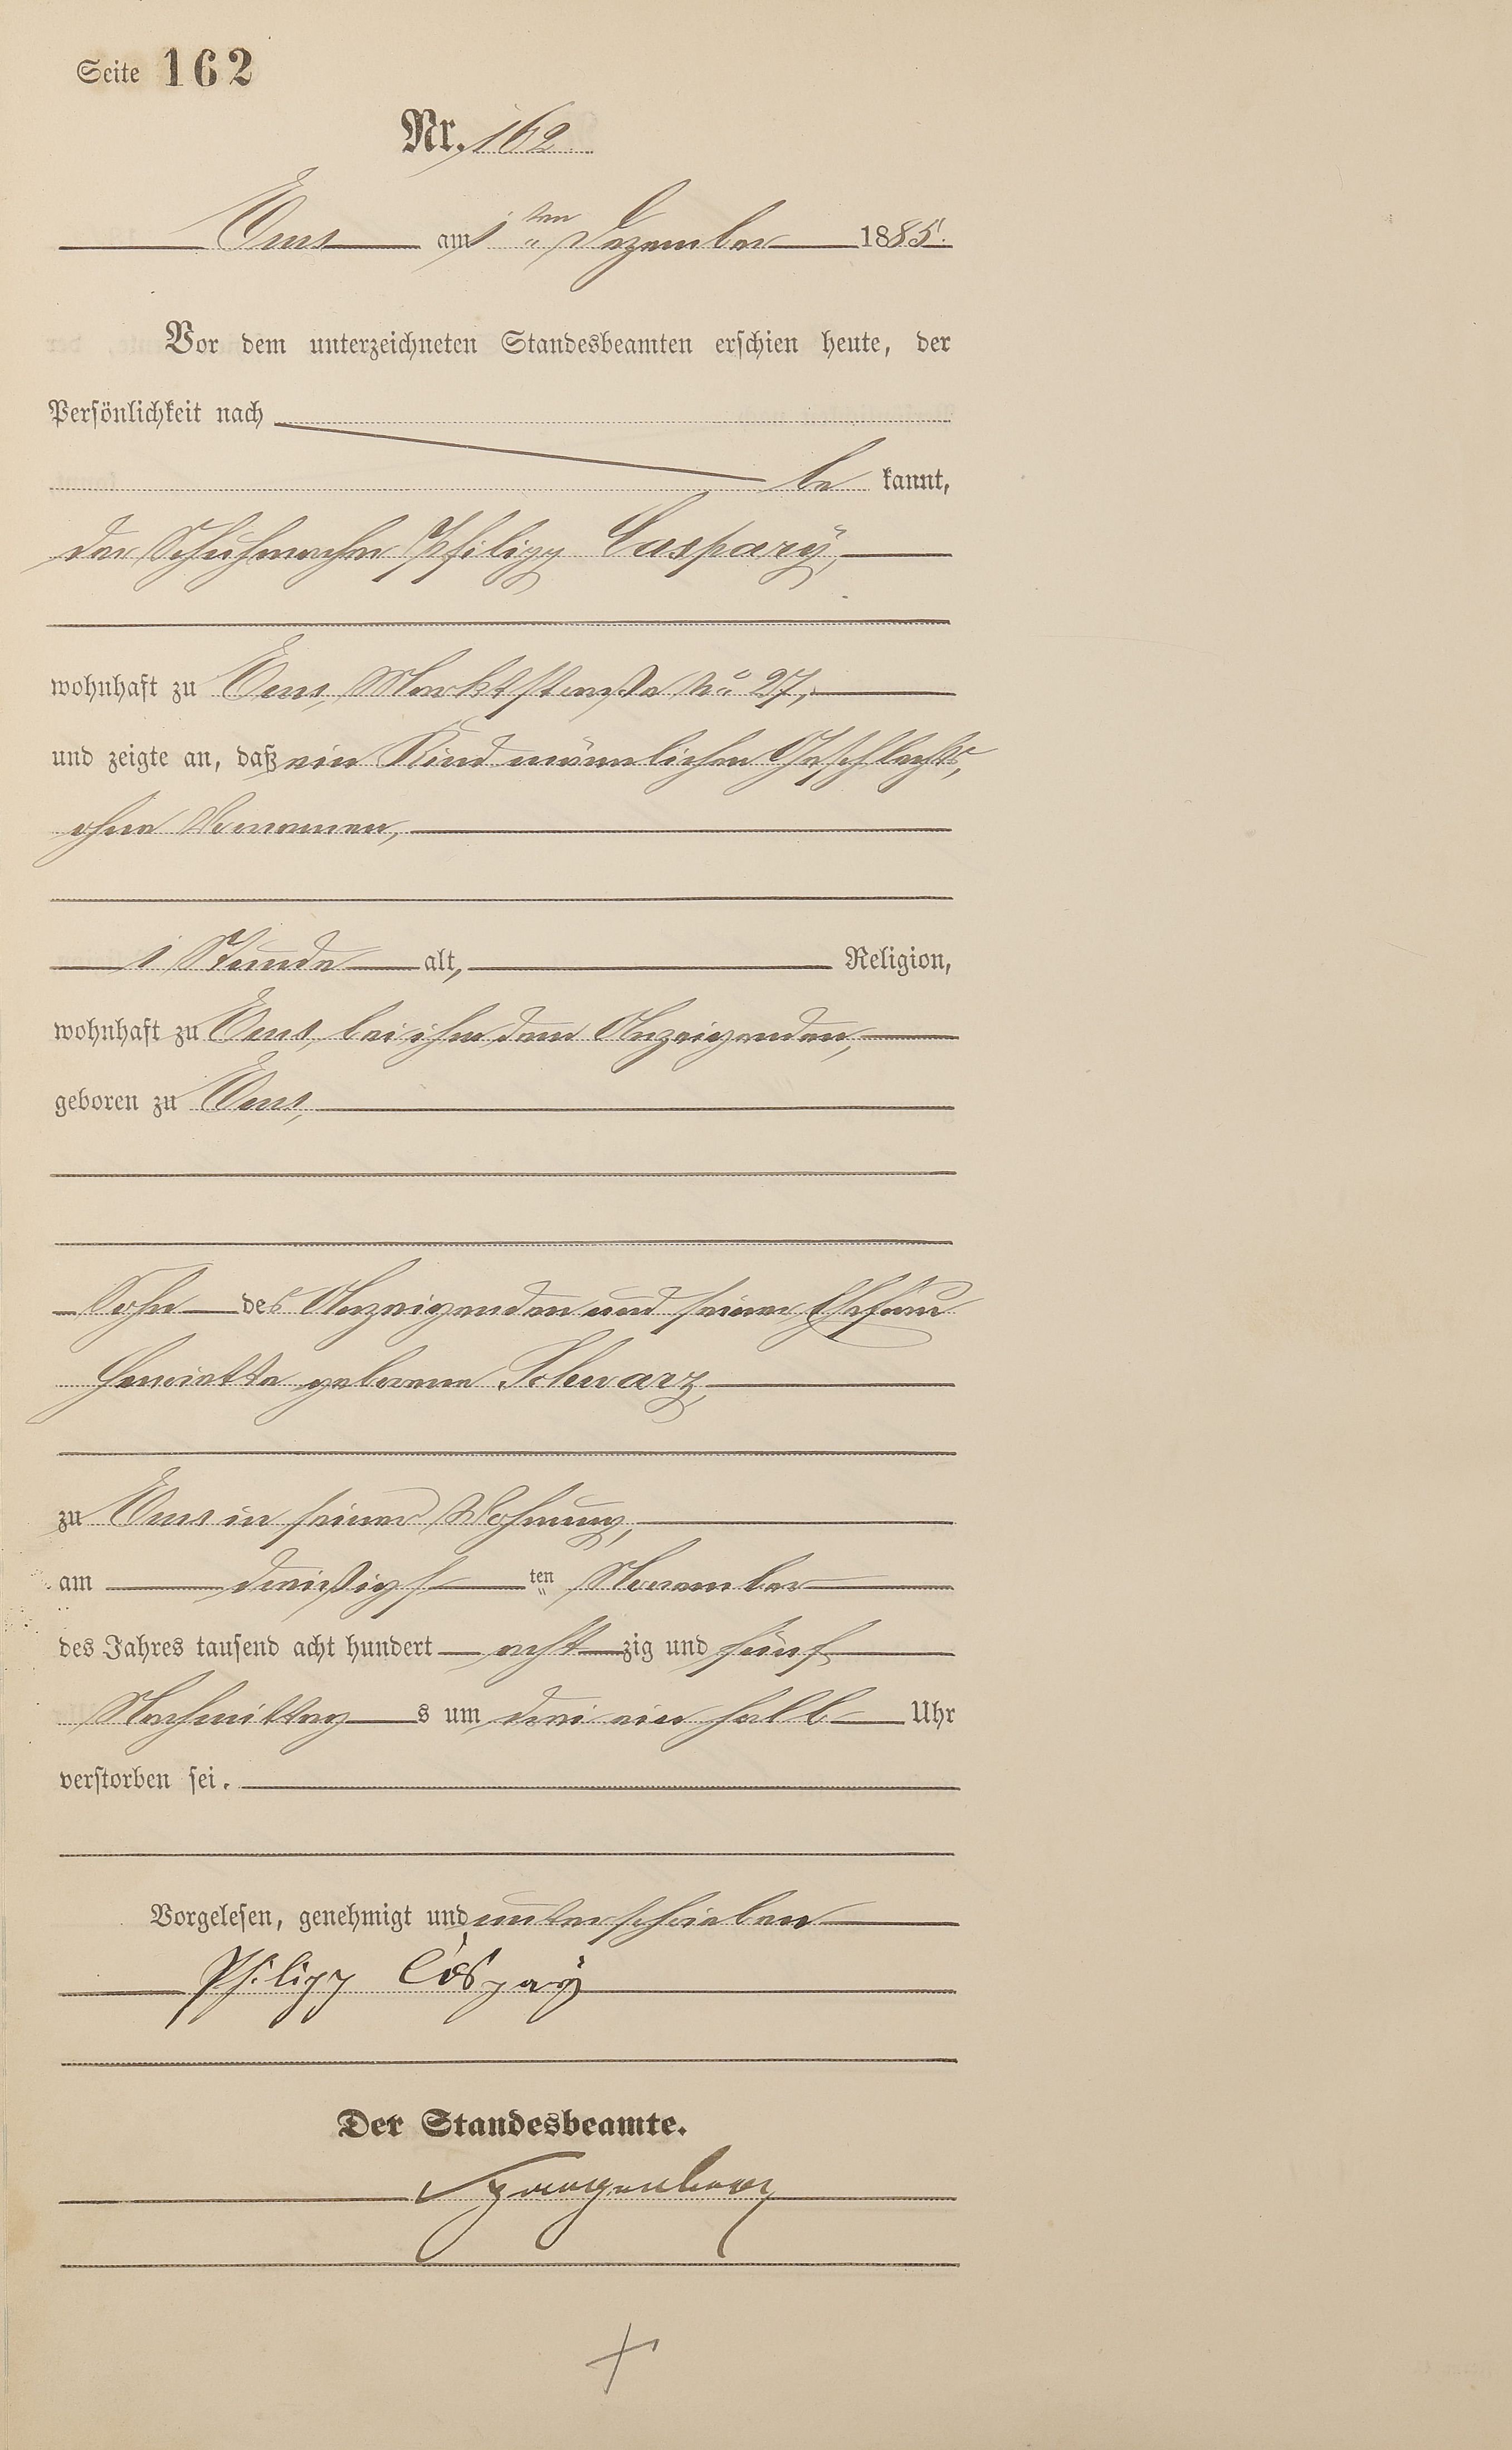 Seite 162
Nr. 162
Ems am 1ten Dezember 1885.
Vor dem unterzeichneten Standesbeamten erschien heute, der
Persönlichkeit nach
be kannt,
der Schuhmacher Philipp Casparÿ,
wohnhaft zu Ems, Marktstraße No 27,
und zeigte an, daß ein Kind männlichen Geschlechts,
ohne Vornamen,
1 Stunde alt, Religion,
wohnhaft zu Ems, bei ihm dem Anzeigenden,
geboren zu Ems,
Sohn des Anzeigenden und seiner Ehefrau
Henriette geborene Schwarz,
zu Ems in seiner Wohnung,
am dreißigsten November
des Jahres tausend acht hundert acht zig und fünf
Nachmittag s um drei ein halb Uhr
verstorben sei.
Vorgelesen, genehmigt und unterschrieben
Philipp Caspary
Der Standesbeamte.
Spangenberg